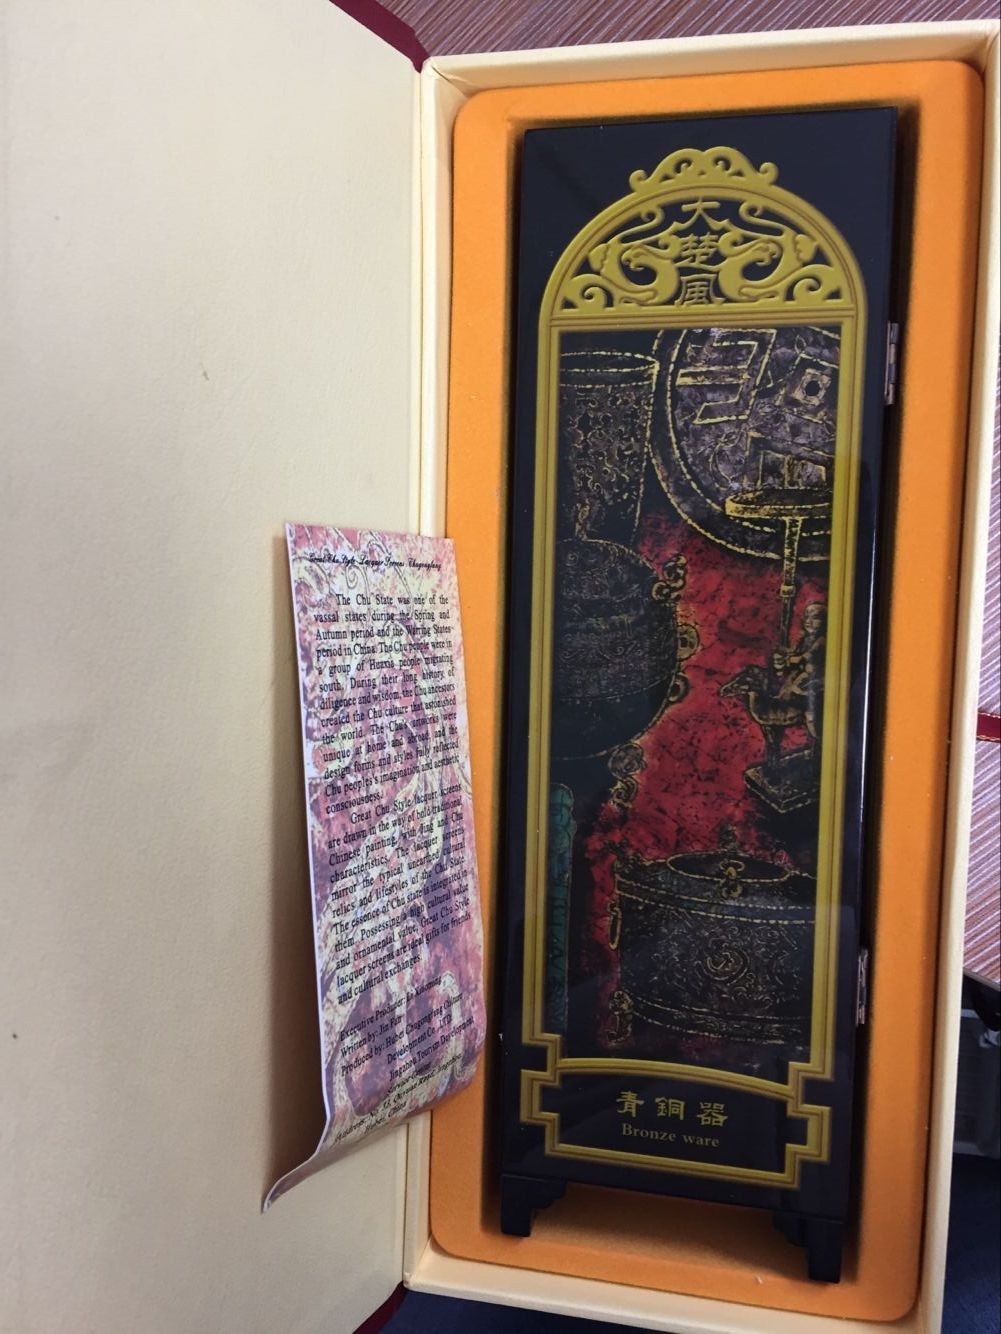 Great Chu Style Lacquer Screens Chugongfang
The Chu State was one of the
vassal states during the Spring and
Autumn period and the Warring States
period in China. The Chu people were in
a group of Huaxia people migrating
south. During their long history of
diligence and wisdom, the Chu ancestors
created the Chu culture that astonished
the world. The Chu's artworks were
unique at home and abroad, and the
design forms and styles fully reflected
Chu peoples's imagination and aesthetic
consciousness.
Great Chu Style lacquer screens
are drawn in the way of bold traditional
Chinese painting, with Jing and Chu
characteristics. The lacquer screens
mirror the typical unearthed cultural
relics and lifestyles of the Chu State.
The essence of Chu state is integrated in
them. Possessing a high cultural value
and ornamental value, Great Chu Style
lacquer screens are ideal gifts for friends
and cultural exchanges.
Executive Producer: Xiaoming
Written by: Jin Fan
Produced by: Hubei Chugongfang Culture
Development Co., LTD
Jingzhou Tourism Development
Service Center
Address: Road, Jingzhou
Hubei, China
大
楚
風
青銅器
Bronze ware